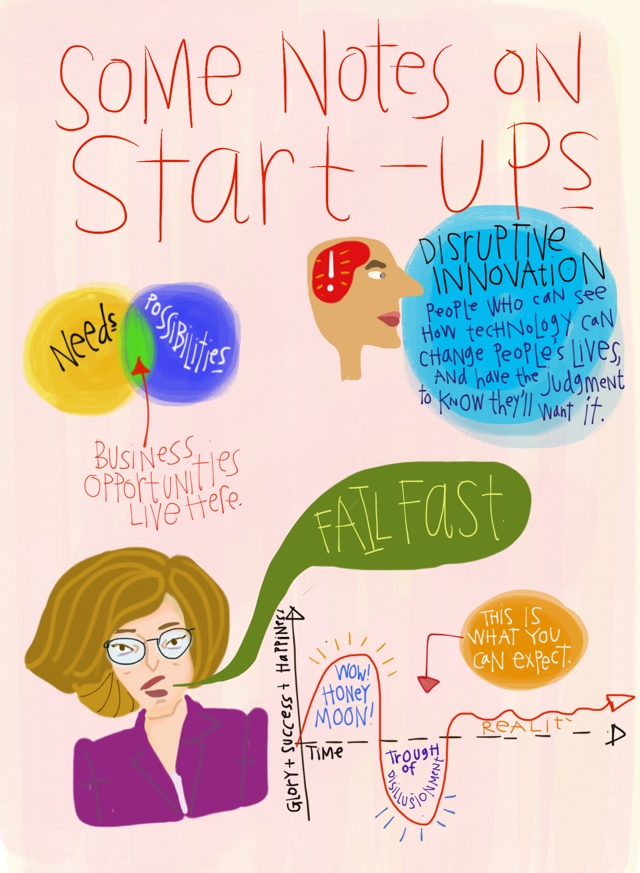 SOME NOTES ON
START-UPS
DISRUPTIVE
INNOVATION
PEOPLE WHO CAN SEE
HOW TECHNOLOGY CAN
CHANGE PEOPLE'S LIVES,
AND HAVE THE JUDGMENT
TO KNOW THEY'LL WANT IT.
!
NEEDS
POSSIBILITIES
BUSINESS
OPPORTUNITIES
LIVE HERE.
FAIL FAST.
GLORY + SUCCESS + HAPPINESS
WOW!
HONEY
MOON!
TIME
TROUGH
OF
DISILLUSIONMENT
THIS IS
WHAT YOU
CAN EXPECT.
REALITY